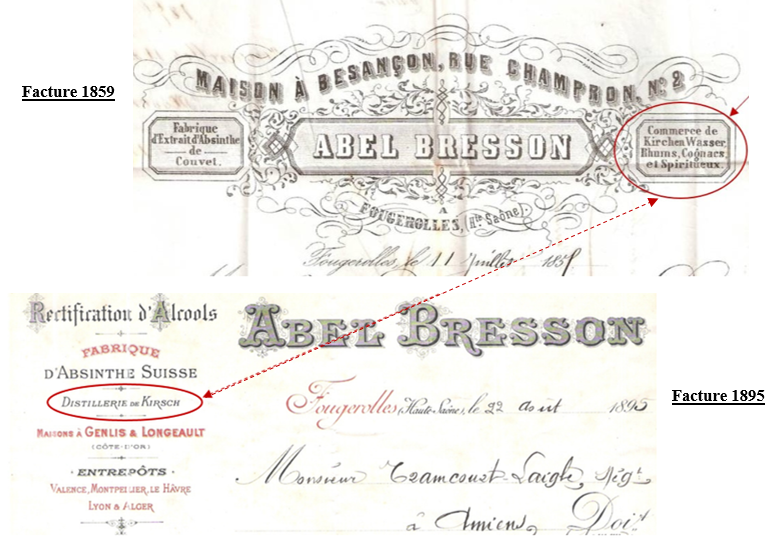 Facture 1859
MAISON À BESANÇON, RUE CHAMPRON, Nº 2.
Fabrique
d'Extrait d'Absinthe
de
Couvet.
ABEL BRESSON
Commerce de
Kirchen Wasser,
Rhums, Cognacs,
et Spiritueux.
A
FOUGEROLLES, (Hte SAÔNE).
Fougerolles, le 11 Juillet 1859
Rectification d'Alcools
FABRIQUE
D'ABSINTHE SUISSE
DISTILLERIE DE KIRSCH
MAISONS À GENLIS & LONGEAULT
(CÔTE-D'OR)
ENTREPÔTS
VALENCE, MONTPELLIER, LE HÂVRE
LYON & ALGER
ABEL BRESSON
Fougerolles (Haute Saône), le 22 août 1895
Monsieur Laigle, Négt
à Amiens Doit
Facture 1895